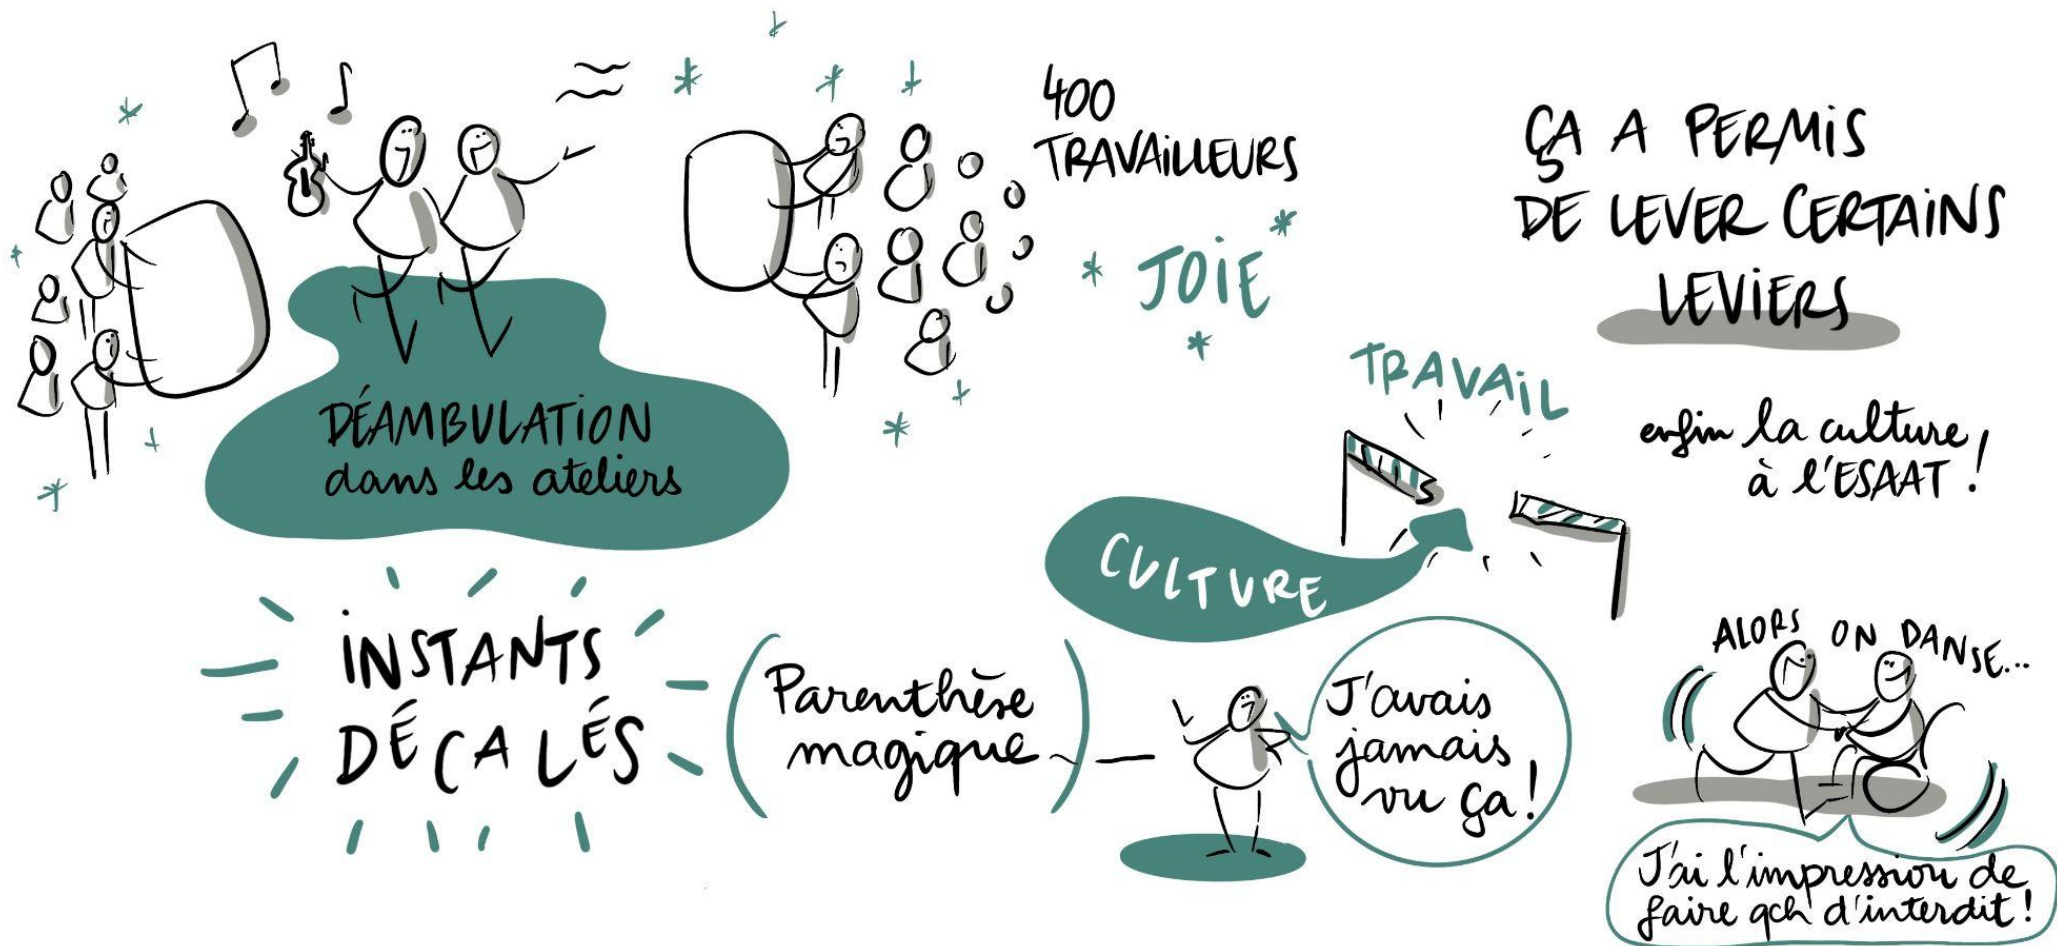 400
TRAVAILLEURS
JOIE
DÉAMBULATION
dans les ateliers
ÇA A PERMIS
DE LEVER CERTAINS
LEVIERS
TRAVAIL
enfin la culture
à l'ESAAT !
CULTURE
INSTANTS
DÉCALÉS
Parenthèse
magique
J'avais
jamais
vu ça !
ALORS ON DANSE...
J'ai l'impression de
faire qch d'interdit !